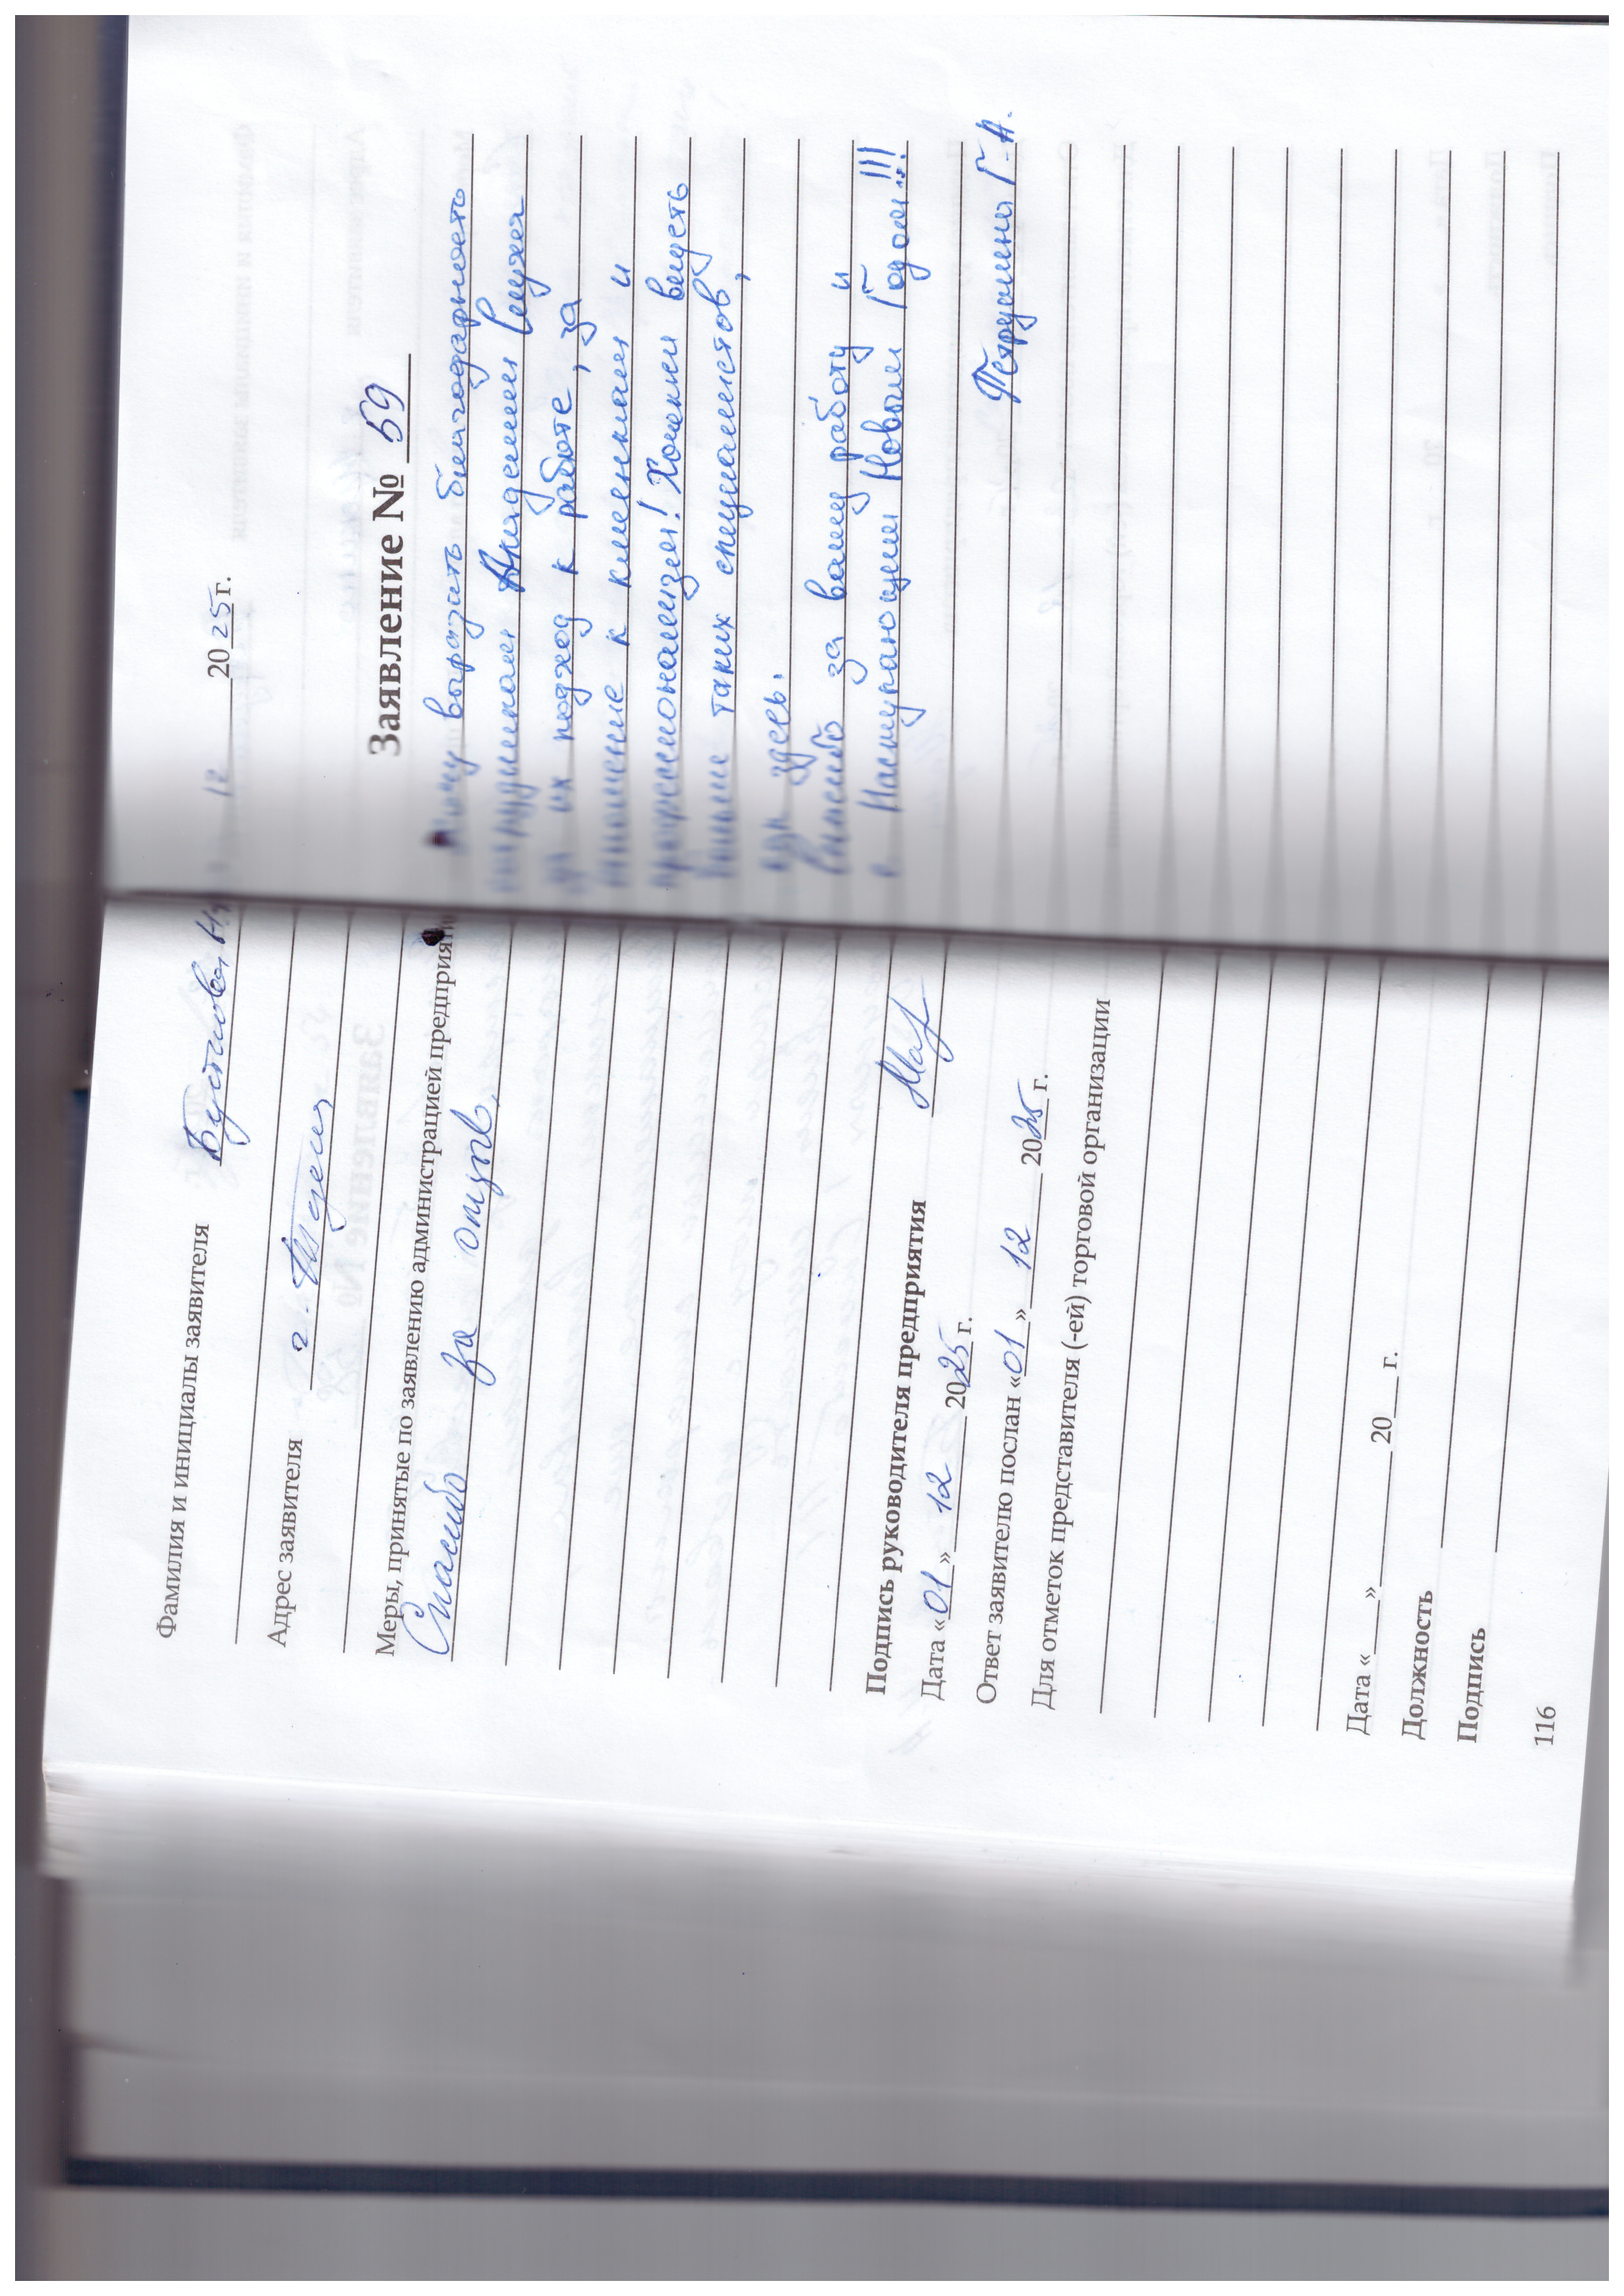 Фамилия и инициалы заявителя
Бустиовая Н
Адрес заявителя г.
Меры, принятые по заявлению администрацией предприяти
Спасибо за отзыв.
Подпись руководителя предприятия
Дата «01» 12 2025 г.
Ответ заявителю послан «01» 12 2025 г.
Для отметок представителя (-ей) торговой организации
Дата «___» ______ 20___ г.
Должность
Подпись
116
12 2025 г.
Заявление № 59
Хочу выразить благодарность
сотрудникам
за их подход к работе, за
отношение к клиенкам и
профессионализм! Хочеки видеть
больше таких специалистов,
как здесь.
Спасибо за вашу работу и
с Наступающим Новым Годом!!!
Г.А.